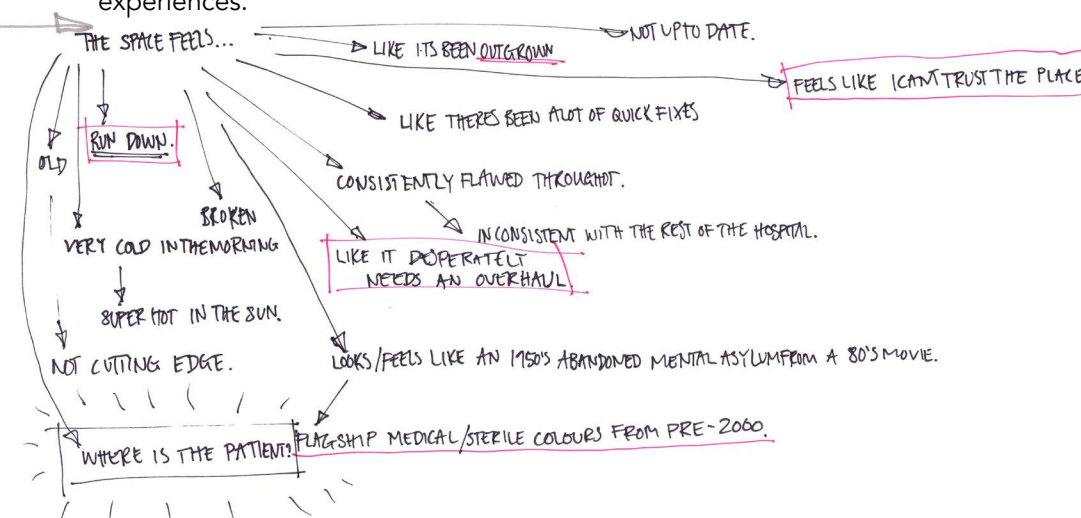 experiences.
THE SPACE FEELS...
NOT UP TO DATE.
LIKE ITS BEEN OUTGROWN
FEELS LIKE I CANT TRUST THE PLACE
LIKE THERES BEEN ALOT OF QUICK FIXES
RUN DOWN.
OLD
CONSISTENTLY FLAWED THROUGHOT.
BROKEN
INCONSISTENT WITH THE REST OF THE HOSPITAL.
VERY COLD IN THE MORNING
LIKE IT DOPERATELT
NEEDS AN OVERHAUL.
SUPER HOT IN THE SUN.
NOT CUTTING EDGE.
LOOKS/FEELS LIKE AN 1950'S ABANDONED MENTAL ASYLUM FROM A 80'S MOVIE.
WHERE IS THE PATIENT?
FLAGSHIP MEDICAL/STERILE COLOURS FROM PRE-2000.